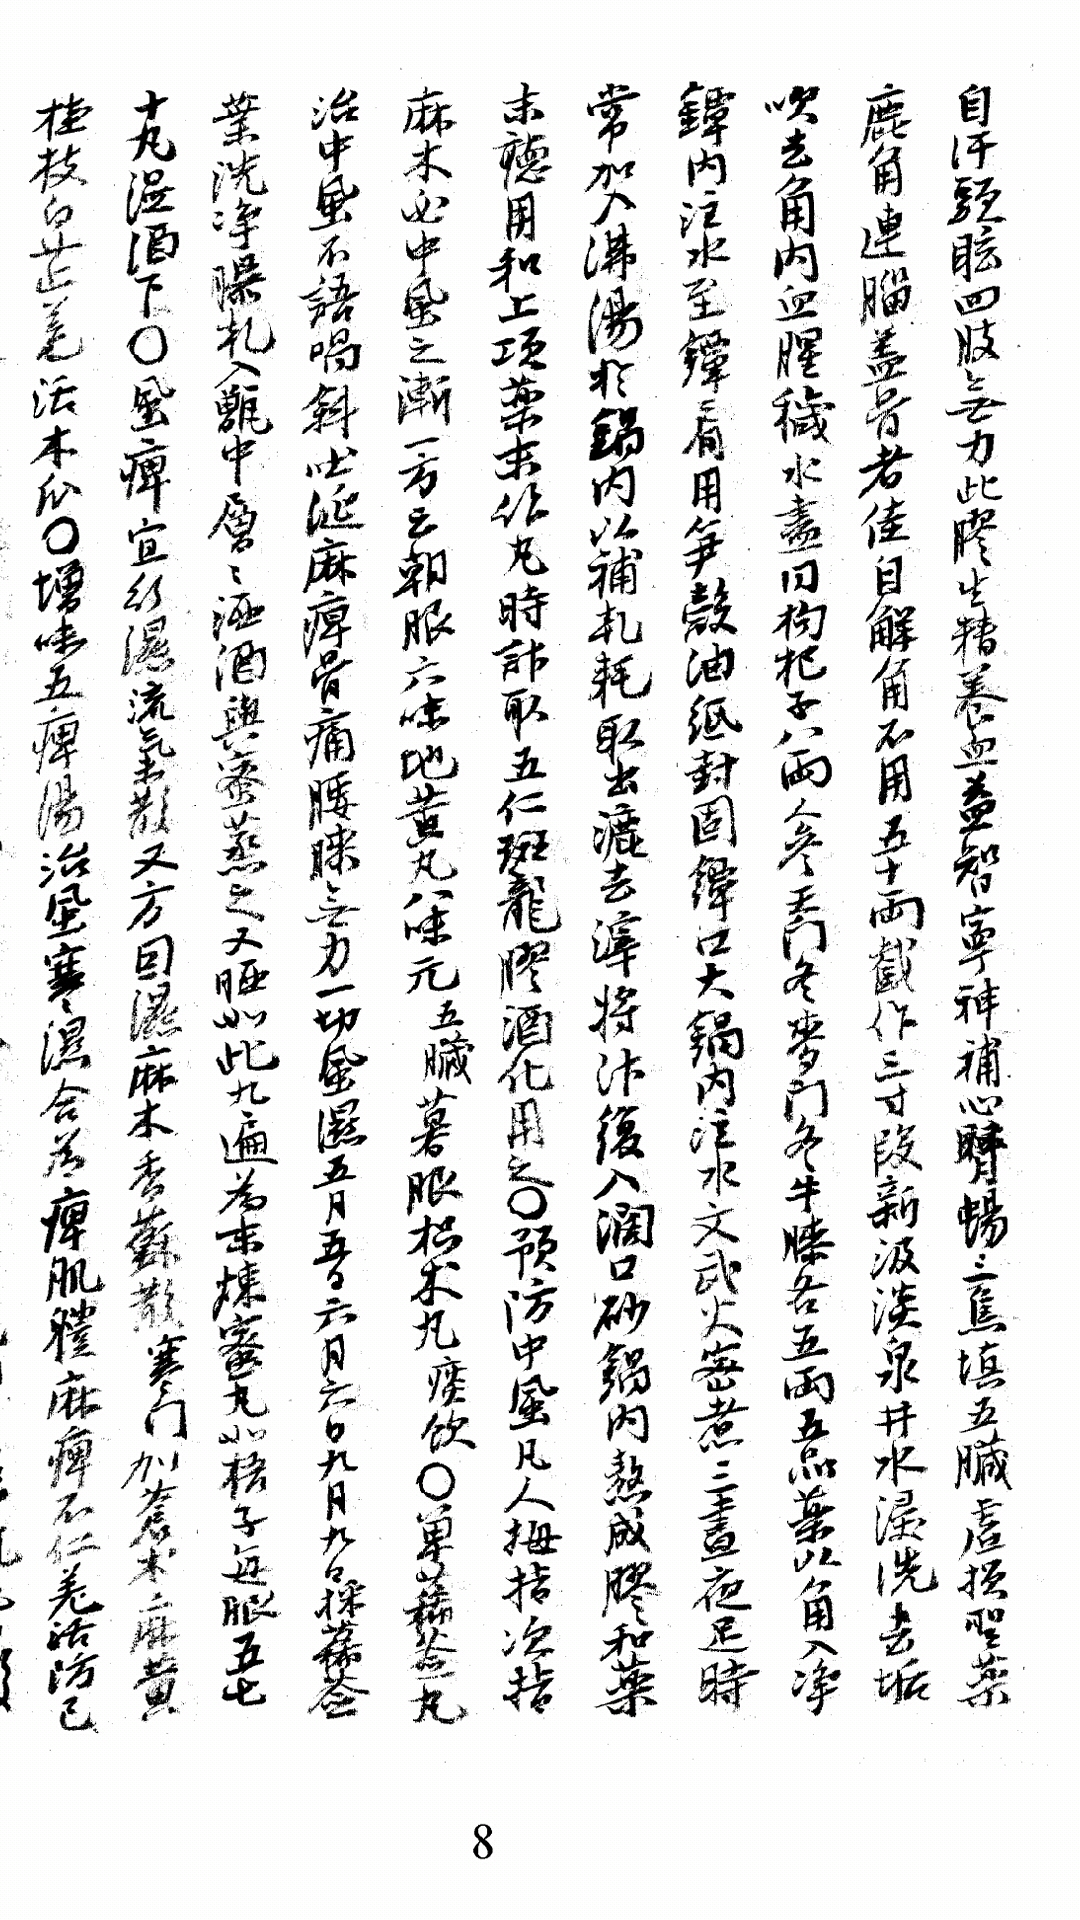 自汗頭眩四肢無力此膠生精養血益智寧神補心腎暢三焦填五臟虛損聖藥
鹿角連腦蓋骨者佳自解角不用五十兩截作三寸段新汲淡泉井水浸洗去垢
吹去角內血腥穢水盡同枸杞子八兩人參天門冬麥門冬牛膝各五兩五品藥以角入凈
鐔內注水至鐔肩用笋殼油紙封固鐔口大鍋內注水文武火密煮三晝夜足時
常加入沸湯於鍋內以補乾耗取出漉去滓將汁復入濶口砂鍋內熬成膠和藥
末聽用和上項藥末作丸時許取五仁斑龍膠酒化用之〇預防中風凡人拇指次指
麻木必中風之漸一方云朝服六味地黃丸八味元五臟暮服枳朮丸痰飲〇單豨薟丸
治中風不語喎斜吐涎麻痺骨痛腰膝無力一切風濕五月五日六月六日九月九日採豨薟
葉洗凈曝乾入甑中層〻洒酒與蜜蒸之又晒如此九遍為末煉蜜丸如梧子每服五七
十丸溫酒下〇風痺宜行濕流氣散又方回濕麻木香蘇散寒門加蒼朮麻黃
桂枝白芷羌活木瓜〇增味五痺湯治風寒濕合為痺肌體麻痺不仁羌活防己